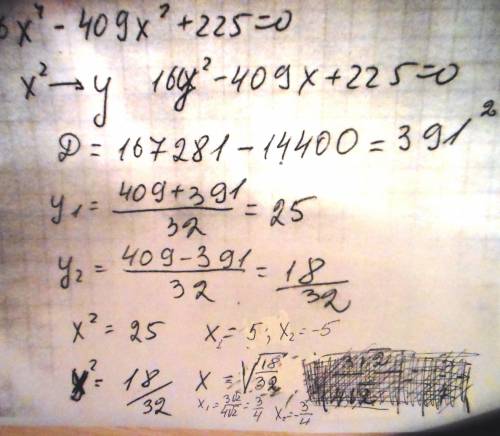 6x⁴ - 409x² + 225 = 0
x² → y   16y² - 409x + 225 = 0
D = 167281 - 14400 = 391²
y₁ = (409 + 391)/32 = 25
y₂ = (409 - 391)/32 = 18/32
x² = 25   x₁ = 5; x₂ = -5
x² = 18/32   x = √(18/32)
x₁ = 3√2/4√2 = 3/4   x₂ = -3/4